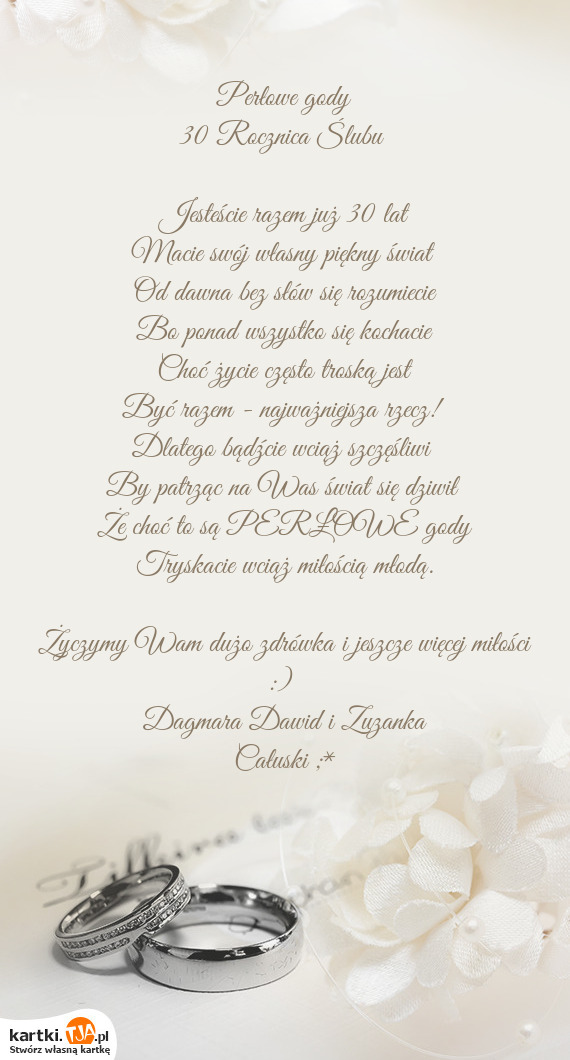 Perłowe gody
30 Rocznica Ślubu
Jesteście razem już 30 lat
Macie swój własny piękny świat
Od dawna bez słów się rozumiecie
Bo ponad wszystko się kochacie
Choć życie często troską jest
Być razem - najważniejsza rzecz!
Dlatego bądźcie wciąż szczęśliwi
By patrząc na Was świat się dziwił
Że choć to są PERŁOWE gody
Tryskacie wciąż miłością młodą.
Życzymy Wam dużo zdrówka i jeszcze więcej miłości
:)
Dagmara Dawid i Zuzanka
Całuski ;*
kartki.TJA.pl
Stwórz własną kartkę